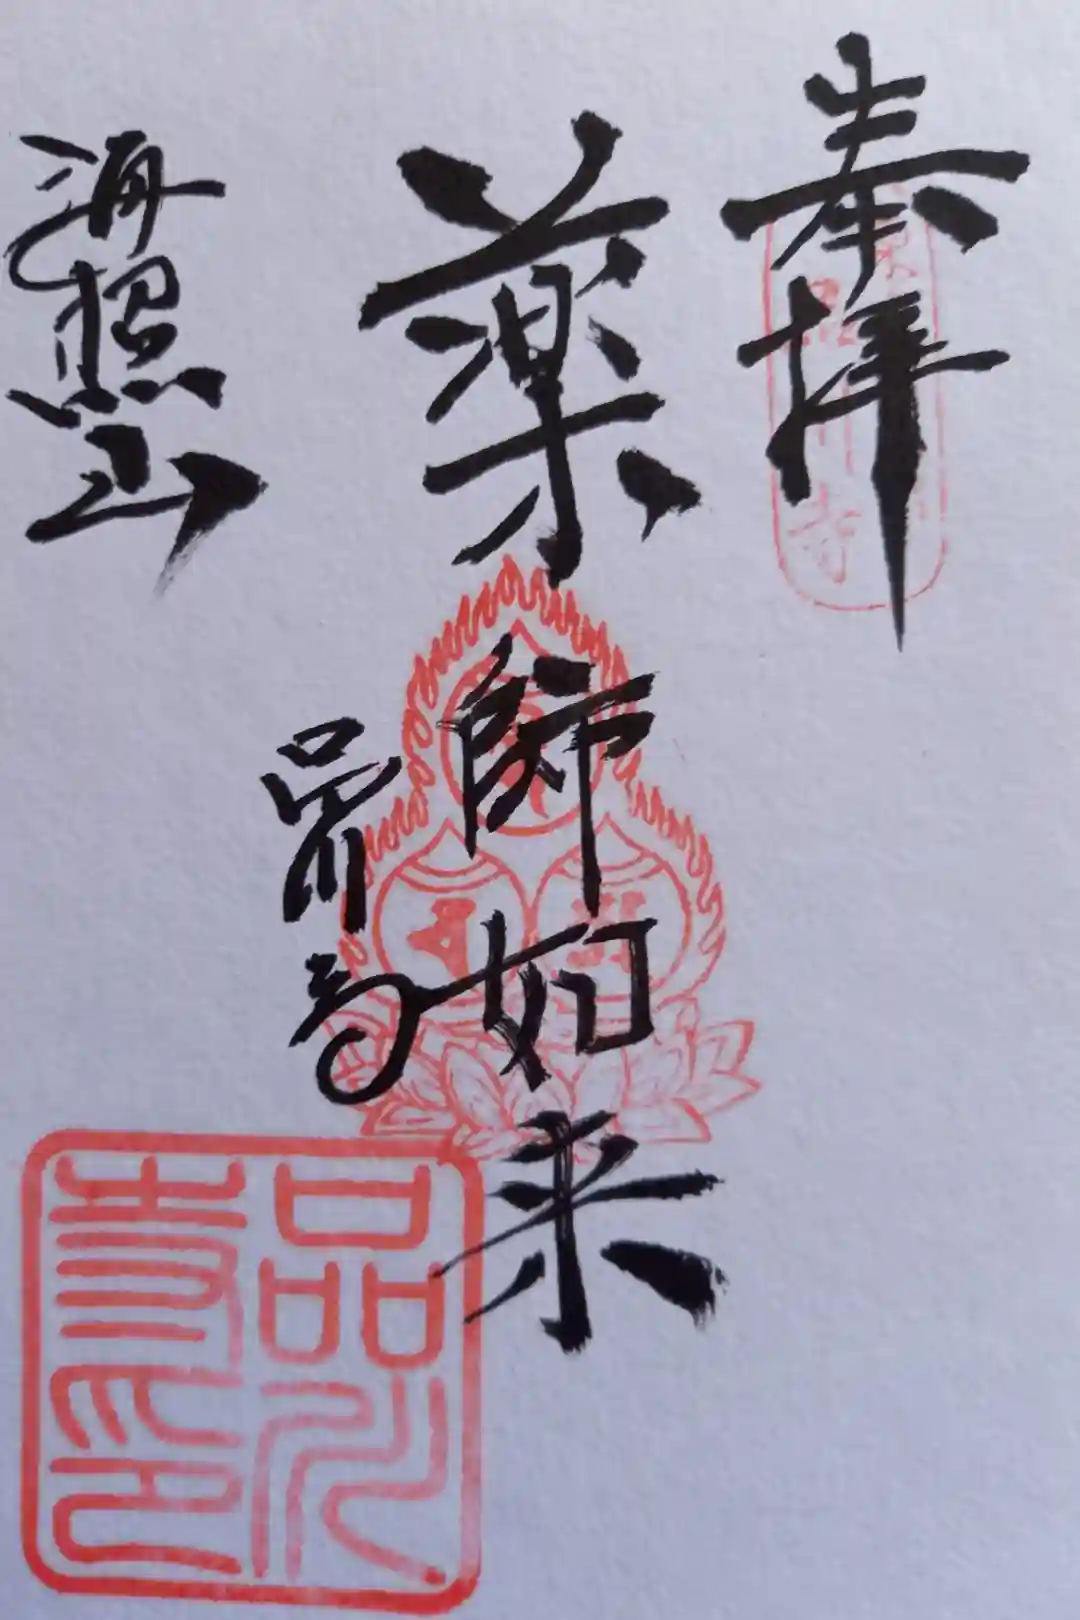 奉拝
薬師如来
海照山
品川寺
品川
寺印